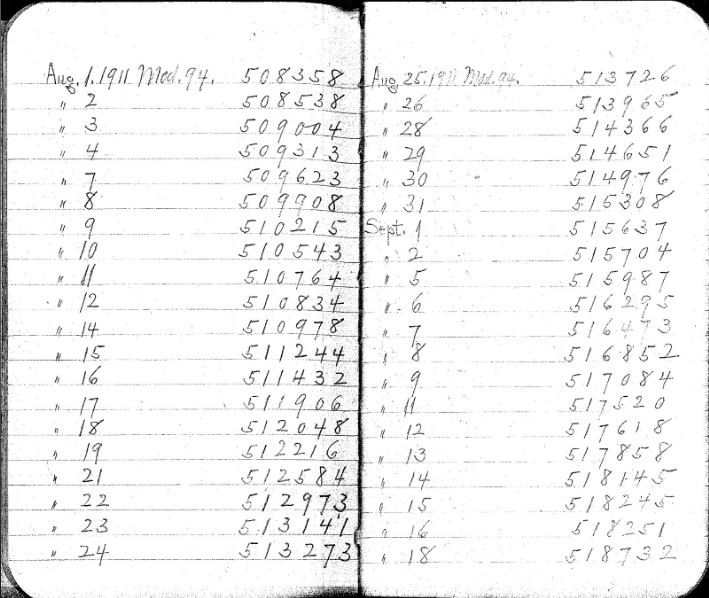 Aug. 1. 1911 Mod. 94. 508358
" 2 508538
" 3 509004
" 4 509313
" 7 509623
" 8 509908
" 9 510215
" 10 510543
" 11 510764
" 12 510834
" 14 510978
" 15 511244
" 16 511432
" 17 511906
" 18 512048
" 19 512216
" 21 512584
" 22 512973
" 23 513141
" 24 513273
Aug 25. 1911 Mod. 94. 513726
" 26 513965
" 28 514366
" 29 514651
" 30 514976
" 31 515308
Sept. 1 515637
" 2 515704
" 5 515987
" 6 516295
" 7 516473
" 8 516852
" 9 517084
" 11 517520
" 12 517618
" 13 517858
" 14 518145
" 15 518245
" 16 518251
" 18 518732